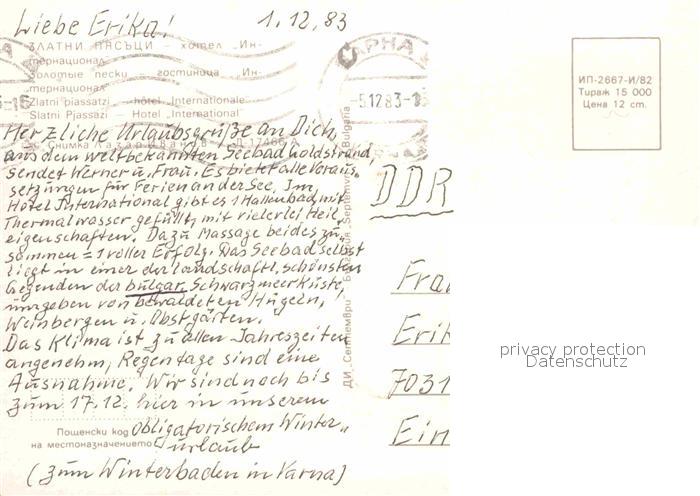 Liebe Erika! 1.12.83
ЗЛАТНИ ПЯСЪЦИ — хотел „Ин-
тернационал"
Золотые пески — гостиница „Ин-
тернационал"
Zlatni piassatzi — hôtel "Internationale"
Slatni Pjassazi — Hotel "International"
Снимка
Herzliche Urlaubsgrüße an Dich,
aus dem weltbekannten Seebad Goldstrand
sendet Werner u. Frau. Es bietet alle Voraus-
setzungen für Ferien an der See. Im
Hotel International gibt es 1 Hallenbad, mit
Thermalwasser gefüllt, mit vielerlei Heil-
eigenschaften. Dazu Massage beides zu-
sammen = 1 voller Erfolg. Das Seebad selbst
liegt in einer der landschaftl. schönsten
Gegenden der bulgar. Schwarzmeerküste,
umgeben von bewaldeten Hügeln,
Weinbergen u. Obstgärten.
Das Klima ist zu allen Jahreszeiten
angenehm, Regentage sind eine
Ausnahme. Wir sind noch bis
zum 17.12. hier in unserem
obligatorischem Winter-
urlaub
(zum Winterbaden in Varna)
Пощенски код
на местоназначението
ДИ „Септември" — България "Septemvri" Bulgaria
ВАРНА
-5.12.83-
ИП-2667-И/82
Тираж 15 000
Цена 12 ст.
DDR
Frau
Erik
7031
Ein
privacy protection
Datenschutz